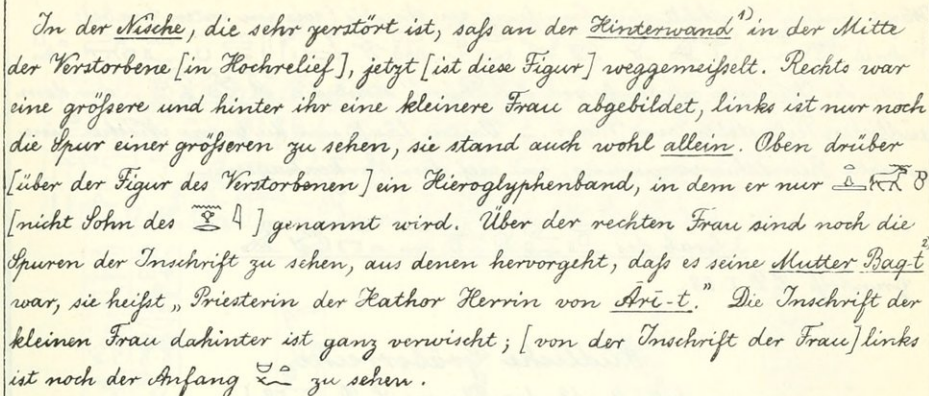 In der Nische, die sehr zerstört ist, saß an der Hinterwand¹⁾ in der Mitte
der Verstorbene [in Hochrelief], jetzt [ist diese Figur] weggemeißelt. Rechts war
eine größere und hinter ihr eine kleinere Frau abgebildet, links ist nur noch
die Spur einer größeren zu sehen, sie stand auch wohl allein. Oben drüber
[über der Figur des Verstorbenen] ein Hieroglyphenband, in dem er nur
[nicht Sohn des ] genannt wird. Über der rechten Frau sind noch die
Spuren der Inschrift zu sehen, aus denen hervorgeht, daß es seine Mutter Baq-t²⁾
war, sie heißt „Priesterin der Hathor Herrin von Ārī-t.” Die Inschrift der
kleinen Frau dahinter ist ganz verwischt; [von der Inschrift der Frau] links
ist noch der Anfang zu sehen.